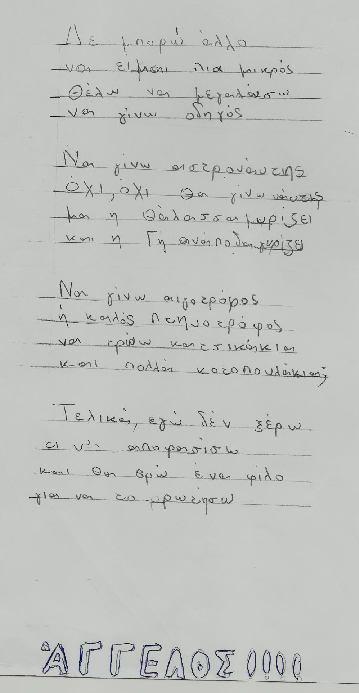 Δε μπορώ άλλο
να είμαι πια μικρός
Θέλω να μεγαλώσω
να γίνω οδηγός
Να γίνω αστροναύτης
όχι, όχι θα γίνω ναύτης
μα η θάλασσα μυρίζει
και η Γη ανάποδα γυρίζει
Να γίνω αιγοτρόφος
ή καλός πτηνοτρόφος
να τρέφω κατσικάκια
και πολλά κοτοπουλάκια;
Τελικά, εγώ δέν ξέρω
τι ν' αποφασίσω
και θα βρω ένα φίλο
για να το ρωτήσω
ΆΓΓΕΛΟΣ!!!!